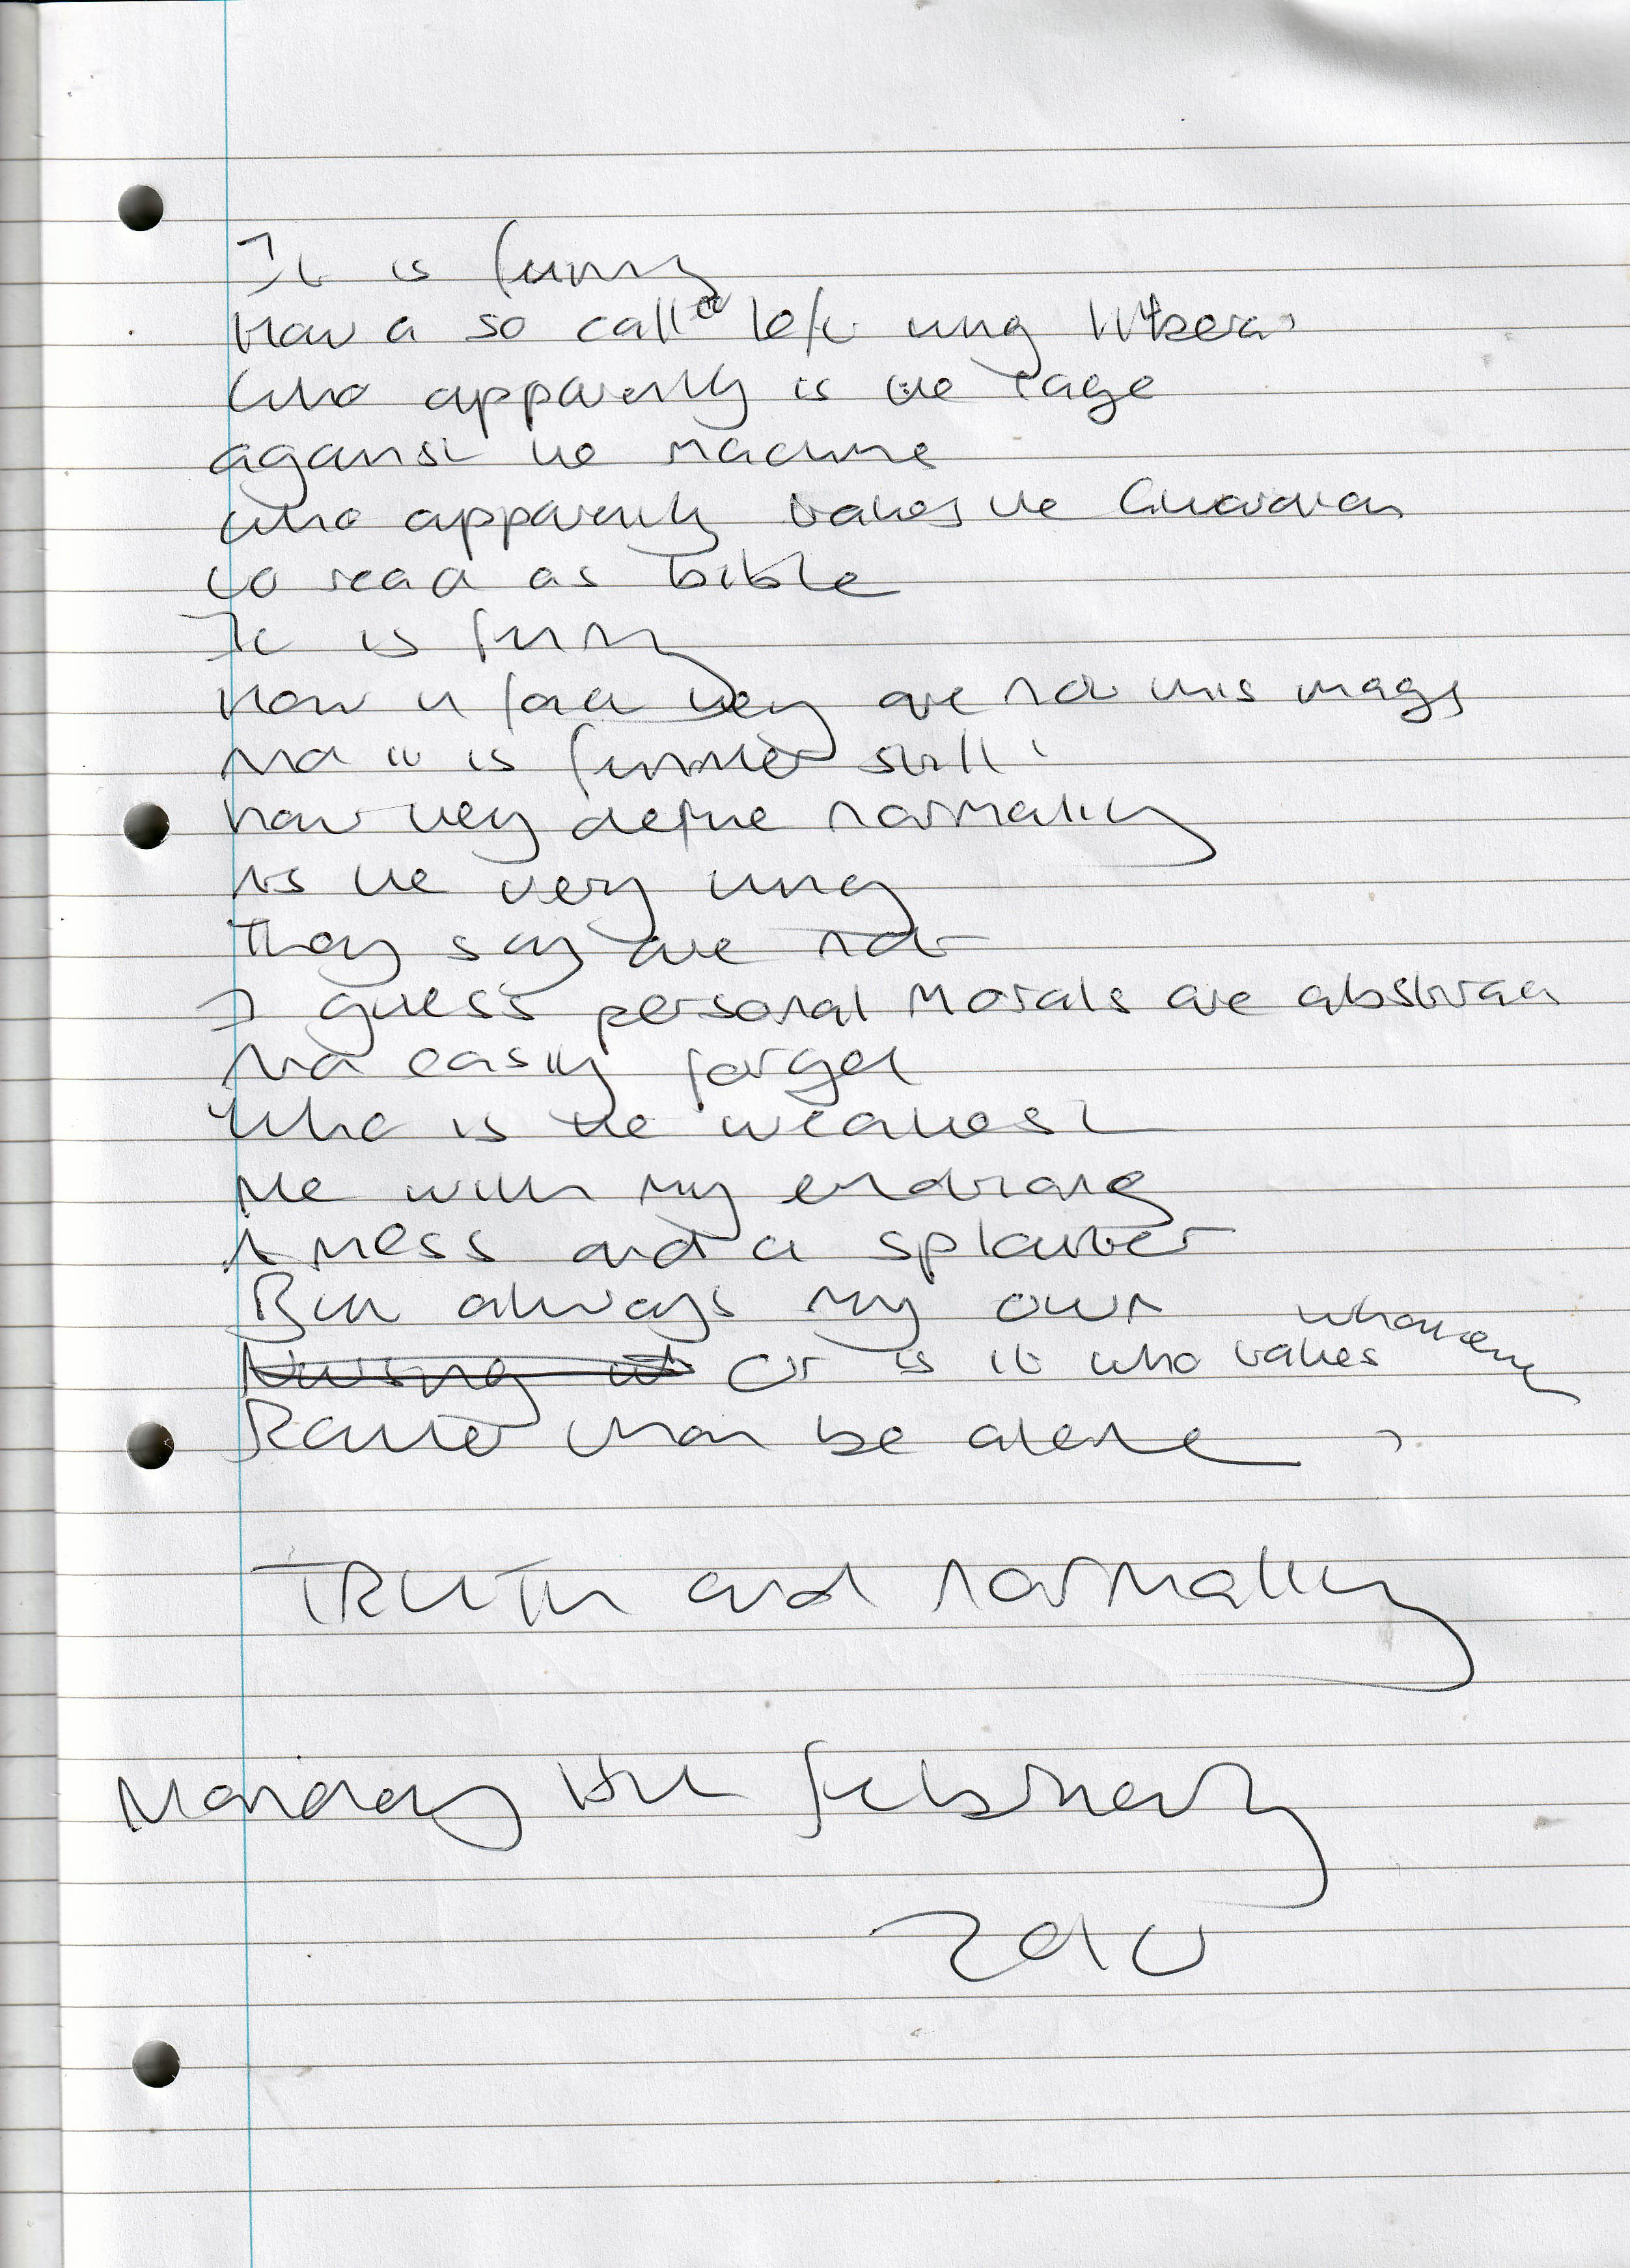 It is funny
How a so called left wing liberal
Who apparently is the rage
against the machine
who apparently takes the Guardian
to read as bible
It is funny
How in fact they are not this image
And it is funnier still
how they define normality
As the very thing
They say are not
I guess personal morals are abstract
And easily forget
Who is the weakest
Me with my
A mess and a splatter
But always my own
Or is it who takes whomever
Rather than be alone
TRUTH and normality
Monday February
2010